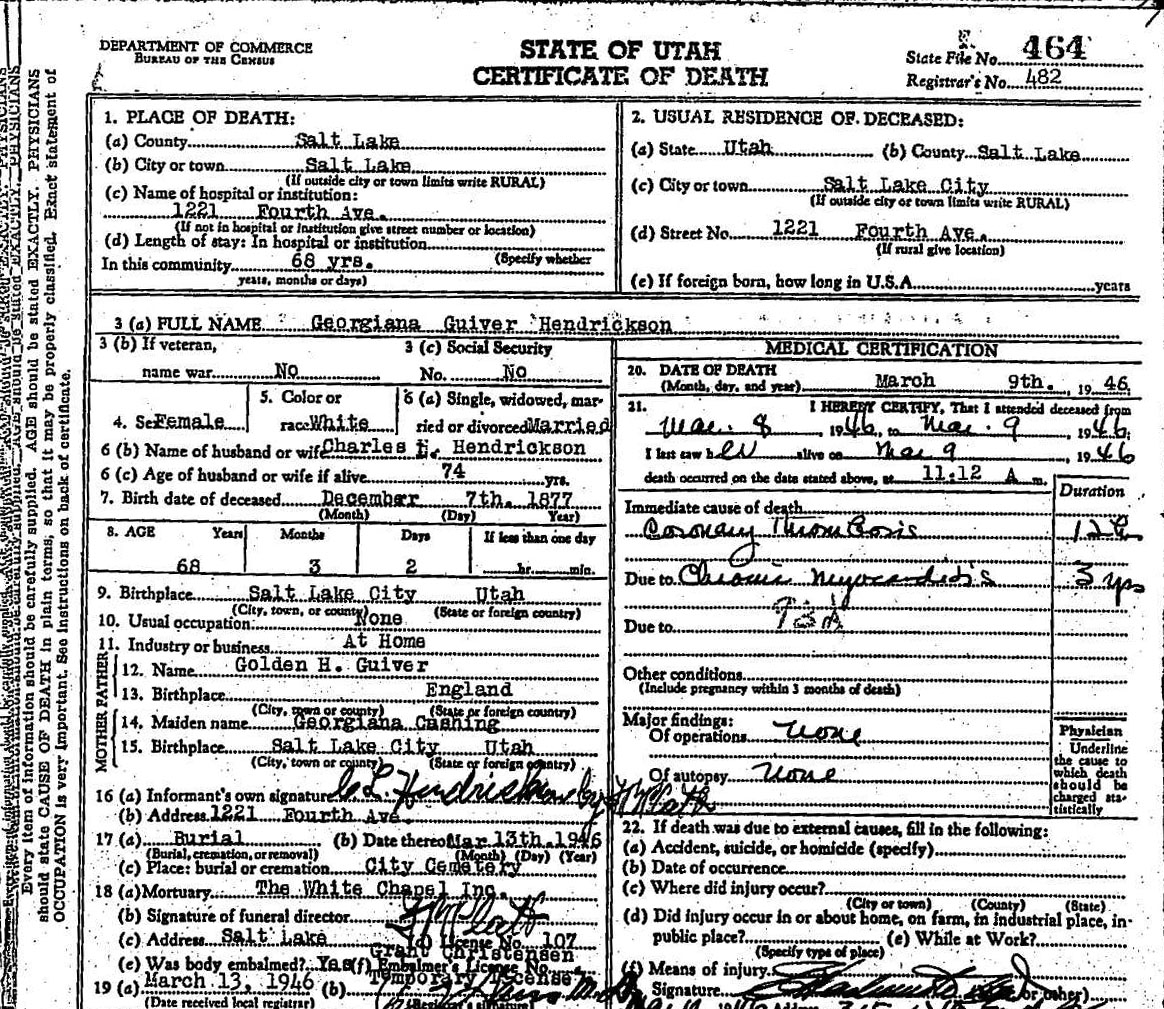 DEPARTMENT OF COMMERCE
BUREAU OF THE CENSUS
STATE OF UTAH
CERTIFICATE OF DEATH
State File No. 464
Registrar's No. 482
Every item of information should be carefully supplied. AGE should be stated EXACTLY. PHYSICIANS
should state CAUSE OF DEATH in plain terms, so that it may be properly classified. Exact statement of
OCCUPATION is very important. See instructions on back of certificate.
1. PLACE OF DEATH:
(a) County Salt Lake
(b) City or town Salt Lake
(If outside city or town limits write RURAL)
(c) Name of hospital or institution:
1221 Fourth Ave.
(If not in hospital or institution give street number or location)
(d) Length of stay: In hospital or institution
(Specify whether
In this community 68 yrs.
years, months or days)
2. USUAL RESIDENCE OF DECEASED:
(a) State Utah (b) County Salt Lake
(c) City or town Salt Lake City
(If outside city or town limits write RURAL)
(d) Street No. 1221 Fourth Ave.
(If rural give location)
(e) If foreign born, how long in U.S.A. years
3 (a) FULL NAME Georgiana Guiver Hendrickson
3 (b) If veteran,
name war No
3 (c) Social Security
No. No
4. Sex Female
5. Color or
race White
6 (a) Single, widowed, mar-
ried or divorced Married
6 (b) Name of husband or wife Charles L. Hendrickson
6 (c) Age of husband or wife if alive 74 yrs.
7. Birth date of deceased December 7th. 1877
(Month) (Day) Year)
8. AGE Years Months Days If less than one day
68 3 2 hr. min.
9. Birthplace Salt Lake City Utah
(City, town, or county) (State or foreign country)
10. Usual occupation None
11. Industry or business At Home
FATHER
12. Name Golden H. Guiver
13. Birthplace England
(City, town or county) (State or foreign country)
MOTHER
14. Maiden name Georgiana Cashing
15. Birthplace Salt Lake City Utah
(City, town or county) (State or foreign country)
16 (a) Informant's own signature C L Hendrickson by
(b) Address 1221 Fourth Ave.
17 (a) Burial (b) Date thereof Mar 13th. 1946
(Burial, cremation, or removal) (Month) (Day) (Year)
(c) Place: burial or cremation City Cemetery
18 (a) Mortuary The White Chapel Inc.
(b) Signature of funeral director
(c) Address Salt Lake (d) License No. 107
Grant Christensen
(e) Was body embalmed? Yes (f) Embalmer's License No.
Temporary License
19 (a) March 13, 1946 (b)
(Date received local registrar) (Registrar's signature)
MEDICAL CERTIFICATION
20. DATE OF DEATH
(Month, day, and year) March 9th. 19 46
21. I HEREBY CERTIFY, That I attended deceased from
Mar. 8 1946, to Mar. 9 1946;
I last saw her alive on Mar 9 1946
death occurred on the date stated above, at 11:12 A m.
Duration
Immediate cause of death
Coronary Thrombosis
Due to Chronic Myocarditis 3 yrs
Due to
Other conditions
(Include pregnancy within 3 months of death)
Major findings:
Of operations none
Of autopsy none
Physician
Underline
the cause to
which death
should be
charged sta-
tistically
22. If death was due to external causes, fill in the following:
(a) Accident, suicide, or homicide (specify)
(b) Date of occurrence
(c) Where did injury occur?
(City or town) (County) (State)
(d) Did injury occur in or about home, on farm, in industrial place, in-
public place? (e) While at Work?
(Specify type of place)
(f) Means of injury
Signature or other)